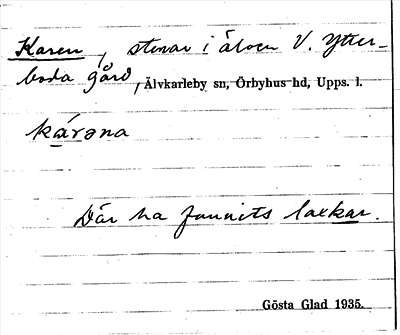 Karen, stenar i älven V. Ytter-
boda gård, Älvkarleby sn, Örbyhus hd, Upps. l.
kárəna
Där ha funnits laxkar.
Gösta Glad 1935.